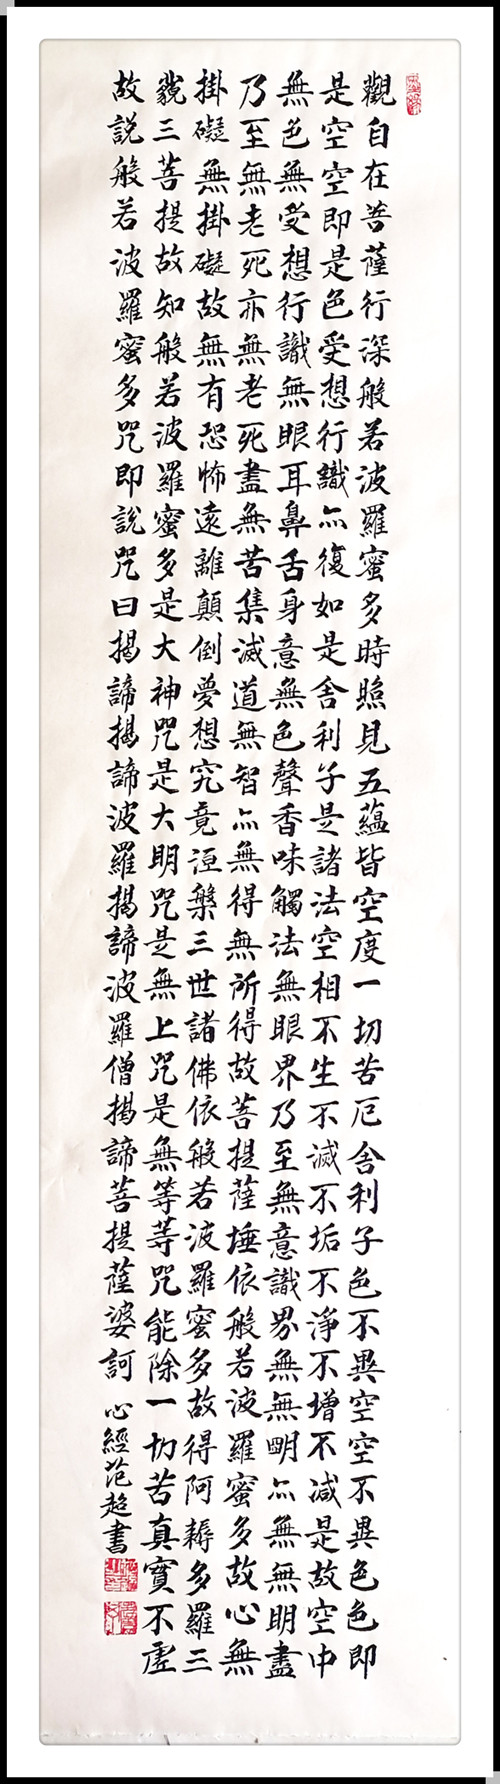 觀自在菩薩行深般若波羅蜜多時照見五蘊皆空度一切苦厄舍利子色不異空空不異色色即
是空空即是色受想行識亦復如是舍利子是諸法空相不生不滅不垢不淨不增不減是故空中
無色無受想行識無眼耳鼻舌身意無色聲香味觸法無眼界乃至無意識界無無明亦無無明盡
乃至無老死亦無老死盡無苦集滅道無智亦無得無所得故菩提薩埵依般若波羅蜜多故心無
掛礙無掛礙故無有恐怖遠離顛倒夢想究竟涅槃三世諸佛依般若波羅蜜多故得阿耨多羅三
藐三菩提故知般若波羅蜜多是大神咒是大明咒是無上咒是無等等咒能除一切苦真實不虛
故說般若波羅蜜多咒即說咒曰揭諦揭諦波羅揭諦波羅僧揭諦菩提薩婆訶 心經范超書